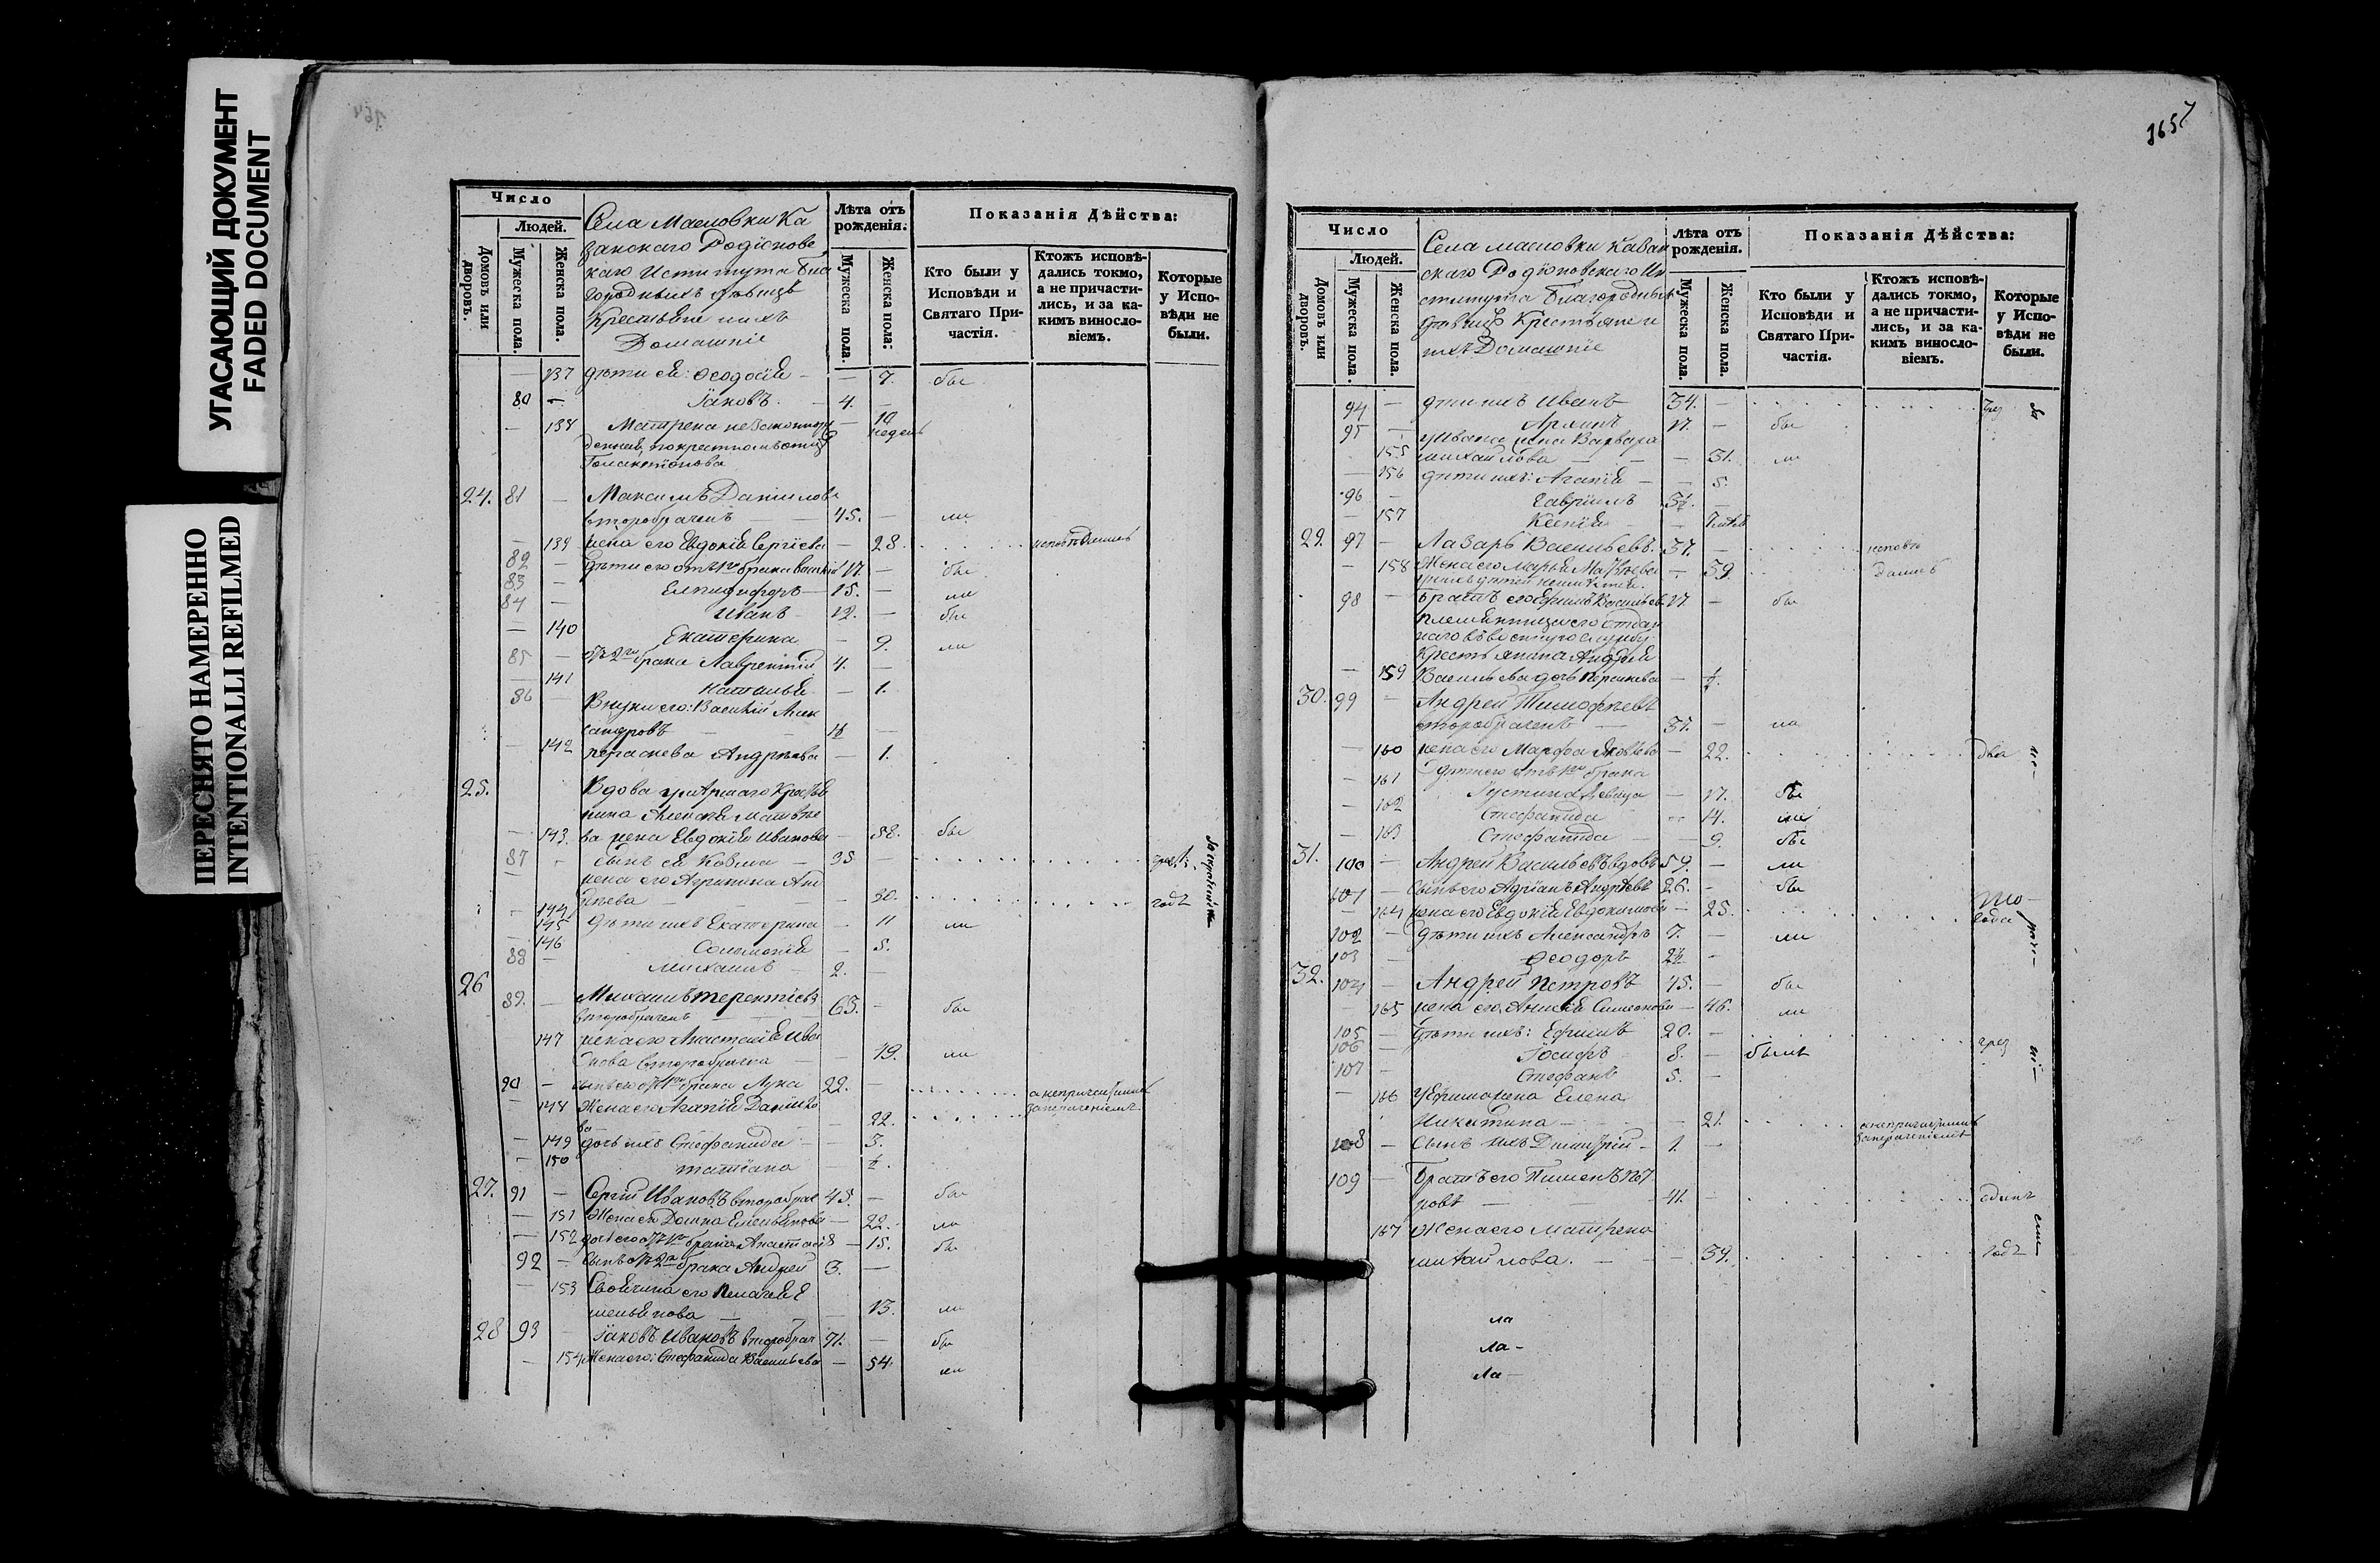 УГАСАЮЩИЙ ДОКУМЕНТ
FADED DOCUMENT
ПЕРЕСНЯТО НАМЕРЕННО
INTENTIONALLI REFILMED
Число
Людей.
Домовъ или дворовъ.
Мужеска пола.
Женска пола.
Села Масловки Ка
занскаго Родіоновс
каго Иститута Бла
городныхъ дѣвицъ
Крестьяне и ихъ
Домашніе
Лѣта отъ рожденія.
Мужеска пола.
Женска пола:
Показанія Дѣйства:
Кто были у Исповѣди и Святаго Причастія.
Ктожъ исповѣдались токмо, а не причастились, и за какимъ винословіемъ.
Которые у Исповѣди не были.
— 137 дѣти ея: Ѳеодосія — — 7. бы
80 — Іаковъ. — 4. —
— 138 Матрена незаконнорж — 10 недель
денная, по крестномъ отцѣ
Галактіонова
24. 81 — Максимъ Даниловъ
второбраченъ — — 45. — ли
— 139 жена его Евдокія Сергіева — 28. исповѣдались
82 — дѣти его отъ 1го брака Василій 17. — бы
83 — Елпидифоръ — 15. — ли
84 — Иванъ 12. — бы
— 140 Екатерина — 9. ли
85 — отъ 2го брака Лаврентій 4. —
— 141 Наталья — 1.
86 — Внуки его: Василій Алек
сандровъ — — ½ —
— 142 Параскева Андреева — 1.
25. Вдова умершаго Крестья
нина Алексѣя Матвѣе
— 143. ва жена Евдокія Иванова — 58. бы
87 — сынъ ея Козма — 35 —
жена его Агрипина Анд
— 144 реева — — 30. годъ
— 145 дѣти ихъ Екатерина — 11 ли
— 146 Соломонія — 5.
88 — Михаилъ — 2.
26
89. — Михаилъ Терентіевъ
второбраченъ — — 63. — бы
147 жена его Анастасія Ива
нова второбрачна — — 49. ли
90 — сынъ его отъ 1го брака Лука 22. а непричастились
— 148 Жена его Агапія Данило
ва — — 22. за пресеченіемъ
— 149 дочь ихъ Стефанида — — 3.
— 150 Татіана — ½.
27. 91 — Сергій Ивановъ второбрач 45. — бы
— 151 Жена его Домна Емельянова — 22. ли
— 152 дочь его отъ 1го брака Анастасія — 15. бы
92 — сынъ отъ 2го брака Андрей 3. —
— 153 Своячина его Пелагея Е
мельянова — — 13. ли
28 93 — Іаковъ Ивановъ второбрач 71. — бы
— 154 Жена его: Стефанида Васильева — 54. ли
Число
Людей.
Домовъ или дворовъ.
Мужеска пола.
Женска пола.
Села Масловки Казан
скаго Родіоновскаго Ин
ститута Благородныхъ
дѣвицъ Крестьяне и
ихъ Домашніе
Лѣта отъ рожденія.
Мужеска пола.
Женска пола.
Показанія Дѣйства:
Кто были у Исповѣди и Святаго Причастія.
Ктожъ исповѣдались токмо, а не причастились, и за какимъ винословіемъ.
Которые у Исповѣди не были.
94 — дѣти ихъ Иванъ 34. —
95 — Архипъ 17. — бы
Ивана жена Варвара
155 Михайлова — — — 31. ли
— 156 дѣти ихъ: Агапія — — 5.
96 — Гавріилъ 3½. —
— 157 Ксенія —
29. 97 — Лазарь Васильевъ. 37. — исповѣ
— 158 Жена его Марья Матвѣева — 39. дались
98 — Братъ его Ефимъ Васильевъ 17. — бы
племянница его отдан
наго въ военную службу
Крестьянина Андрея
— 159 Васильева дочь Параскева — ½.
30. 99 — Андрей Тимофѣевъ
второбраченъ — 37. — ли
— 160 жена его Марфа Яковлева — 22. два
— 161 дѣти его отъ 1го брака
Іустина девица — 17. бы
— 162 Стефанида — 14. ли
— 163 Стефанида — — 9. бы
31. 100 — Андрей Васильевъ вдовъ 59. — ли
101 — Сынъ его Адріанъ Андреевъ 26. — бы
— 164 жена его Евдокія Евдокимова — 25. года
102 — дѣти ихъ Александръ 7. — ли
103 — Ѳеодоръ 2½ —
32. 104 — Андрей Петровъ 45. — бы
— 165 жена его Анисія Симеонова — 46. ли
105 — дѣти ихъ: Ефимъ 20. —
106 — Іосифъ 8. — былъ
107 — Стефанъ 5. —
— 166 У Ефима жена Елена
Никитина — — 21. а непричастились
108 — Сынъ ихъ Димитрій — 1. — за пресеченіемъ
109 — Братъ его Пименъ Пет
ровъ — — 41. — одинъ
167 Жена его Матрена
Михайлова. — — 39. годъ
ла
ла —
ла —